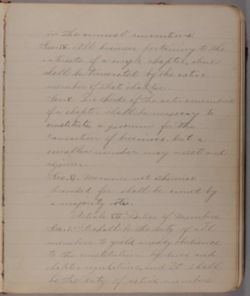 in the annual convention.
Sec. 6. All business pertaining to the
interests of a single chapter, shall
shall be transacted by the active
members of that chapter.
Sec. 7. Two thirds of the active members
of a chapter shall be necessary to
constitute a quorum for the
transaction of business, but a
smaller number may meet and
adjourn.
Sec. 8. Measures not otherwise
provided for shall be carried by
a majority vote.
Article VII Duties of Members
Sec. 1. It shall be the duty of all
members to yield ready obedience
to the constitution by-laws and
chapter regulations, and it shall
be the duty of active members